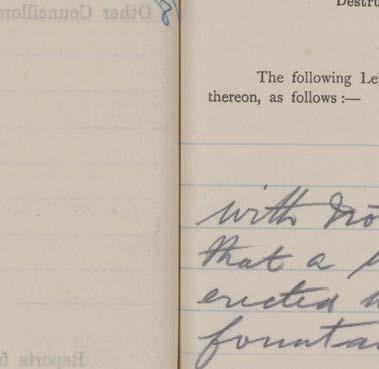 Other Councillors
Destru
The following Le
thereon, as follows :—
with
that a
erected
fountai
Reports f